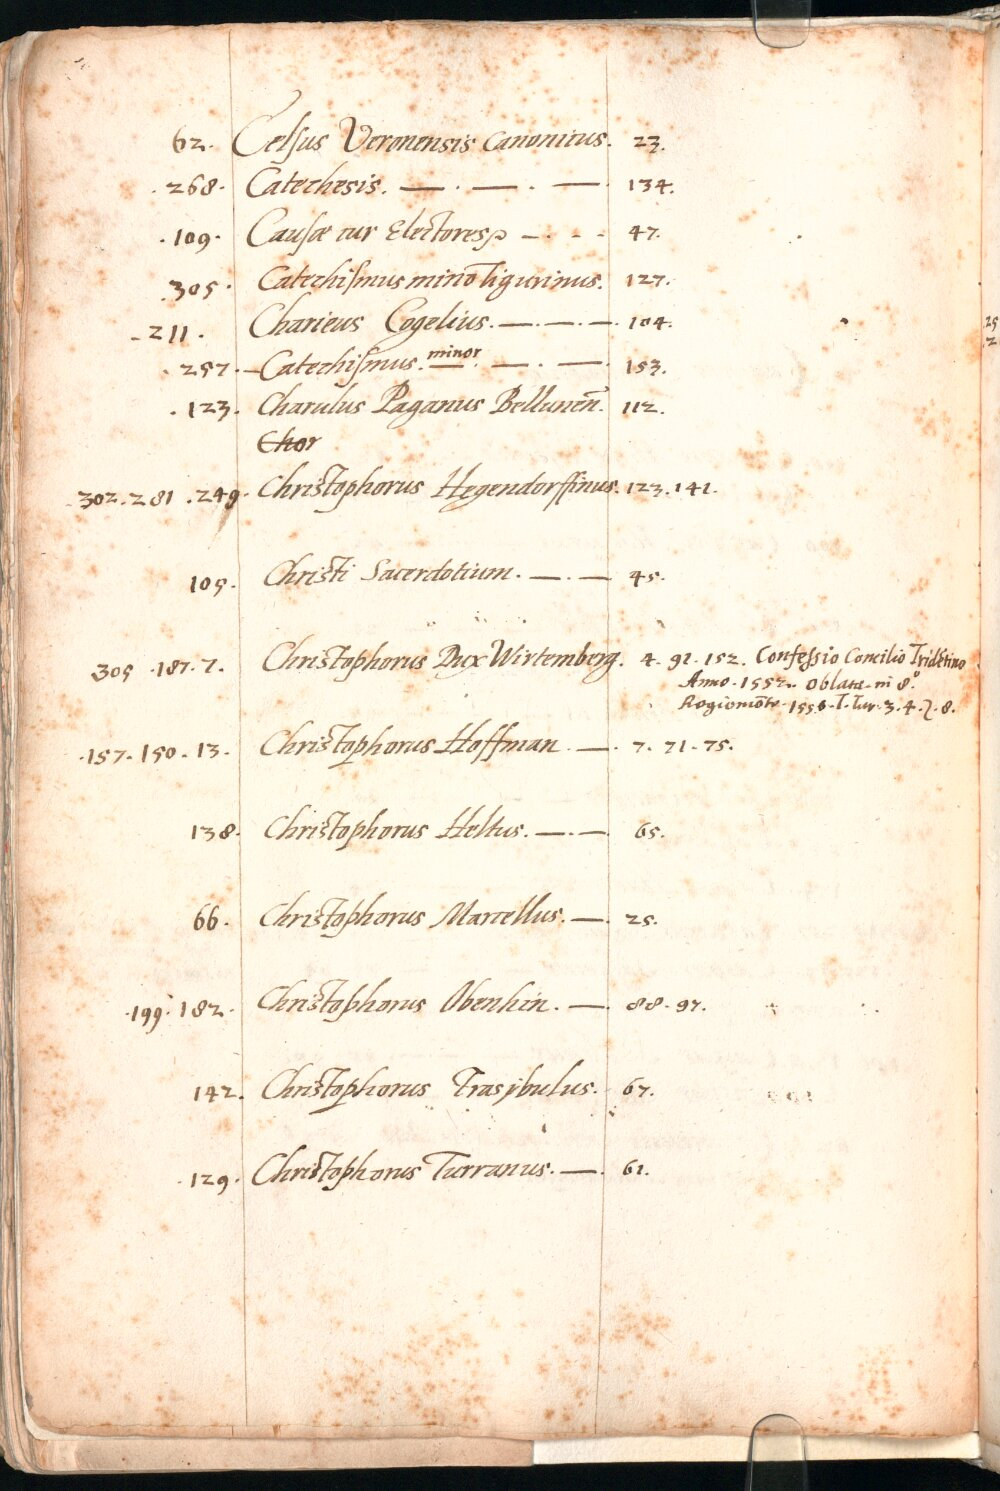 62. Celsus Veronensis Canonicus. 23.
.268. Catechesis. — . — . — . 134.
.109. Causæ cur Electores — . - - 47.
.305. Catechismus minō Tigurinus. 127.
.211. Charieus Cogelius. — . — . — . 104.
.257. Catechismus. minor — . — . — 153.
.123. Charulus Paganus Bellunēn. 112.
Chor
.302.281.249. Christophorus Hegendorffinus. 123.141.
105. Christi Sacerdotium. — . — 45.
305 .187.7. Christophorus Dux Wirtemberg. 4. 91. 152. Confessio Concilio Tridētino
Anno. 1552. Oblata. in 8.º
Regiomōte. 1556.
.157.150.13. Christophorus Hoffman. — . 7. 71. 75.
138. Christophorus Heltus. — . — 65.
66. Christophorus Marcellus. — . 25.
.199. 182. Christophorus Obenhin. — . 88. 97.
142. Christophorus Trasybulus. 67.
.129. Christophorus Turranus. — . 61.